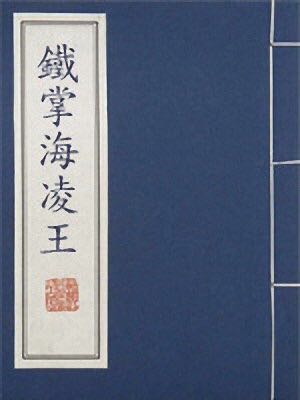 鐵掌海凌王